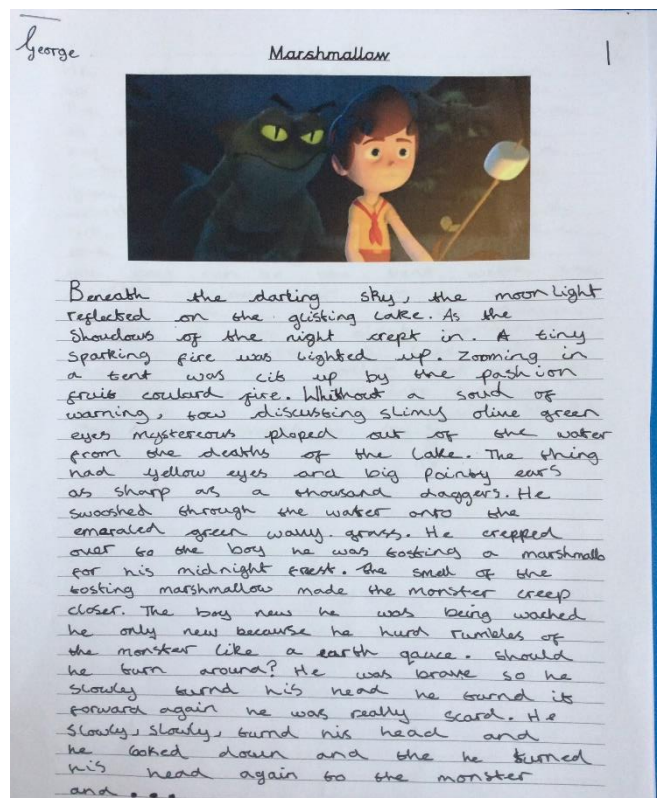 George
Marshmallow
1
Beneath the darting sky, the moonlight
reflected on the glisting lake. As the
Shoudows of the night crept in. A tiny
sparking fire was lighted up. Zooming in
a tent was lit up by the pashion
fruit coulard fire. Whithout a soud of
warning, tow discussting slimy olive green
eyes mystereous ploped out of the water
from the deaths of the lake. The thing
had yellow eyes and big pointy ears
as sharp as a thousand daggers. He
swooshed through the water onto the
emeraled green wavy. grass. He crepped
over to the boy he was tosting a marshmallo
for his midnight feest. the smell of the
tosting marshmallow made the monster creep
closer. The boy new he was being wached
he only new because he hurd rumbles of
the monster like a earth qauce. Should
he turn around? He was brave so he
slowley turnd his head he turnd it
forward again he was really scard. He
slowly, slowly, turnd his head and
he looked down and the he turned
his head again to the monster
and...